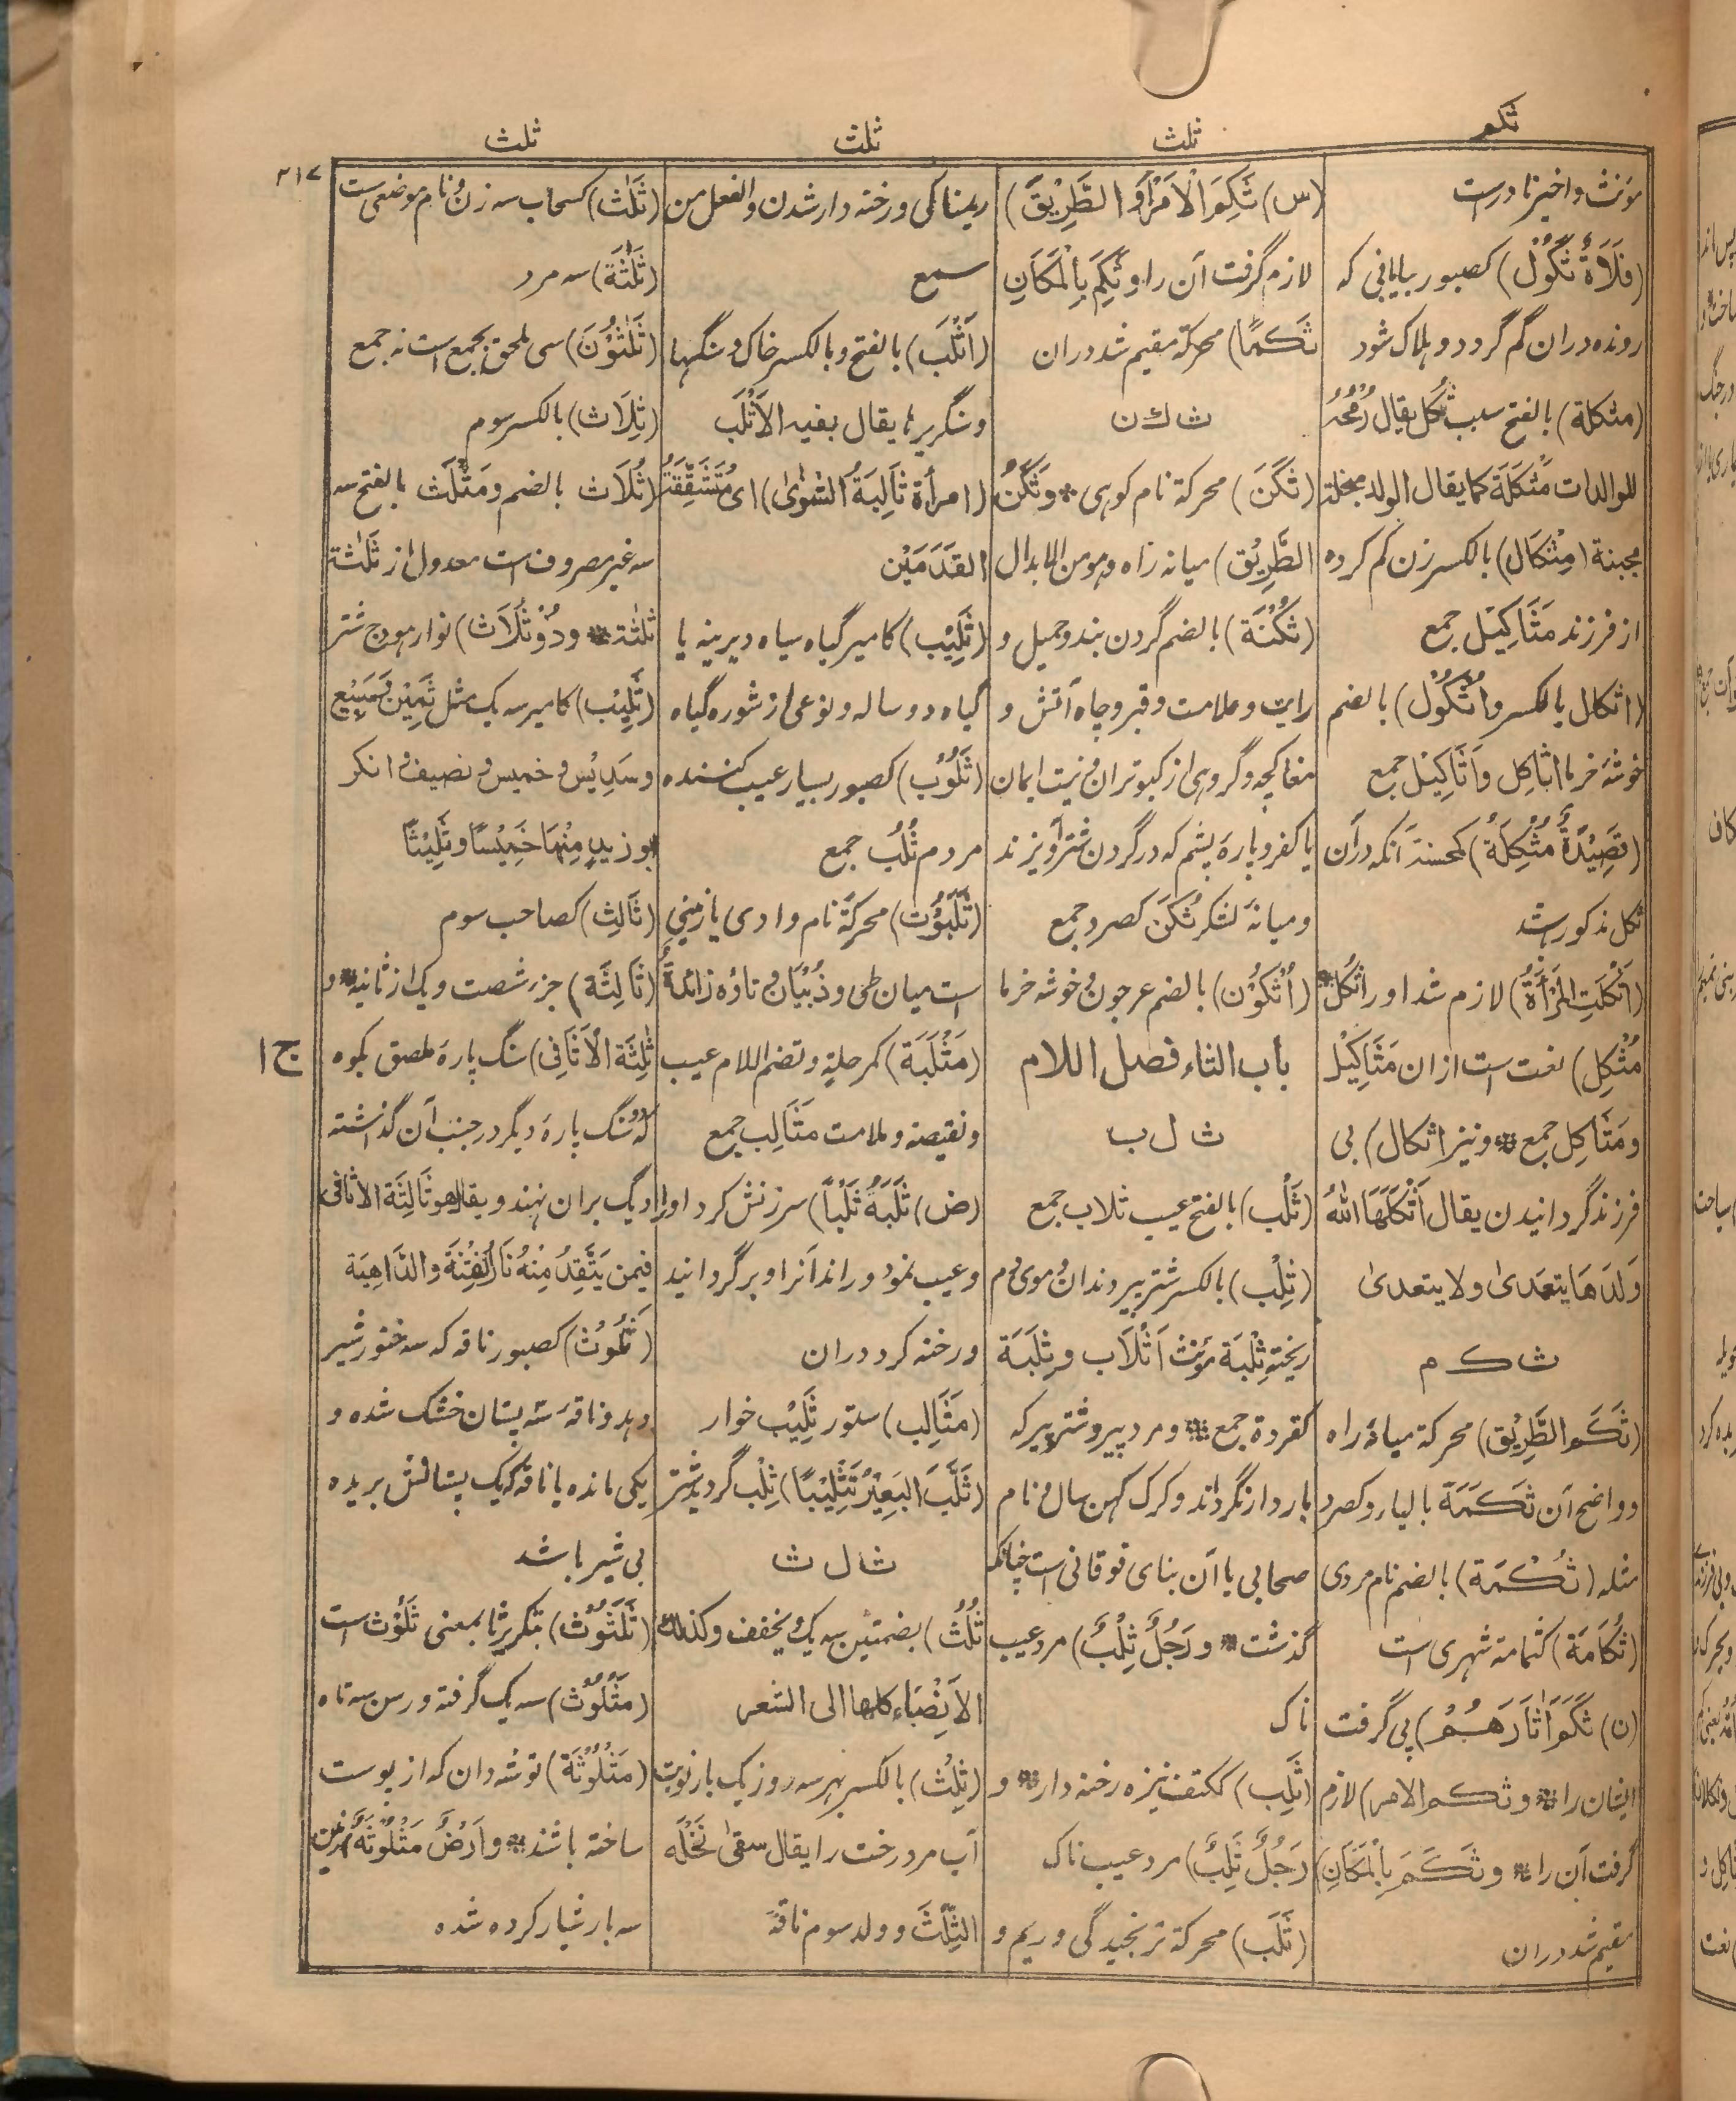 ثکم
ثلث
ثلث
ثلث
۲۱۷
مؤنث واخیر نادرست
(فَلَاةٌ ثَکُوْل) کصبور بیابانی که
رونده دران گم گردد و هلاک شود
(مثکلة) بالفتح سبب ثکل یقال رُمْحُهُ
للوالدات مَثْکَلَة کما یقال الولد مبخلة
مجبنة (مِثْکَال) بالکسر زن گم کرده
از فرزند مَثَاکِیْل جمع
(اثکال بالکسر و اُثْکُوْل) بالضم
خوشهٔ خرما اثاکِل وَاَثَاکِیْل جمع
(قَصِیْدَةٌ مُثْکِلَةٌ) کمحسنة آنکه درآن
ثکل مذکور باشد
(اَثْکَلَتِ المَرْأَةُ) لازم شد او را ثُکل
مُثْکِل) نعت است ازان مَثَاکِیْل
ومَثَاکِل جمع ※ ونیز اثکال) بی
فرزند گردانیدن یقال اَثْکَلَهَا اللهُ
وَلَدَهَا یتعدیٰ ولا یتعدیٰ
ث ک م
(ثَکَم الطَّرِیْق) محرکة میانهٔ راه
و واضح آن ثَکَمَة بالهاء و کصرد
مثله (ثُکْمَة) بالضم نام مردی
(ثُکَامَة) کثمامة شهری است
(ن) ثَکَمَ اٰثَارَهُمْ) پی گرفت
ایشان را ※ وثکم الامر) لازم
گرفت آن را ※ وثَکَمَ بِالْمَکَانِ)
مقیم شد دران
(س) ثَکِمَ الْاَمْرَ اَوِ الطَّرِیْقَ)
لازم گرفت آن را و ثَکِمَ بِالْمَکَانِ
ثَکَمًا) محرکة مقیم شد دران
ث ك ن
(ثَکَنَ) محرکة نام کوهی ※ وثَکَنُ
الطَّرِیْق) میانه راه وهو من الابدال
(ثُکْنَة) بالضم گردن بند و حمیل و
رایت و علامت و قبر و چاه آتش و
مغاکچه و گروهی از کبوتران و نیت ایمان
یا کفر و پارهٔ پشم که در گردن شتر آویزند
ومیانهٔ لشکر ثُکَن کصرد جمع
(اُثْکُوْن) بالضم عرجون و خوشه خرما
باب الثاء فصل اللام
ث ل ب
(ثَلْب) بالفتح عیب ثلاب جمع
(ثِلْب) بالکسر شتر پیر دندان و موی دم
ریخته ثِلْبَة مؤنث اَثْلَاب و ثِلَبَة
کقردة جمع ※ و مرد پیر و شتر پیر که
باردار نگرداند و کرک کهن سال و نام
صحابی یا آن بتای فوقانی است چنانکه
گذشت ※ و رَجُلٌ ثِلْبٌ) مرد عیب
ناک
(ثَلِب) ککتف نیزه رخنه دار ※ و
رَجُلٌ ثَلِبٌ) مرد عیب ناک
(ثَلَب) محرکة ترنجیدگی و ریم و
ریمناکی و رخنه دار شدن والفعل من
سمع
(اَثْلَب) بالفتح وبالکسر خاک و سنگها
و سنگریزها یقال بفیه الاَثْلَب
(امرأة ثَالِبَةُ الشَّوٰی) ای مُتَشَقِّقَةُ
القَدَمَیْن
(ثَلِیْب) کامیر گیاه سیاه دیرینه یا
گیاه دو ساله و نوعی از شوره گیاه
(ثَلُوْب) کصبور بسیار عیب کننده
مردم ثُلُب جمع
(ثَلَبُوْت) محرکةً نام وادی یا زمینی
است میان طی وذُبْیَان وتاؤه زائدةٌ
(مَثْلَبَة) کمرحلة وتضم اللام عیب
ونقیصه و ملامت مَثَالِب جمع
(ض) ثَلَبَهُ ثَلْباً) سرزنش کرد او را
وعیب نمود و راند آنرا و برگردانید
و رخنه کرد دران
(مَثَالِب) ستور ثَلِیْب خوار
(ثَلَّبَ البَعِیْرُ تَثْلِیْبًا) ثِلْب گردید شتر
ث ل ث
ثُلُث) بضمتین سه یک و یخفف وکذلك
الاَنْصِبَاء کلها الی العشر
(ثِلْث) بالکسر بهر سه روز یک بار نوبت
آب مر درخت را یقال سقیٰ نَخْلَه
الثِّلْثَ و ولد سوم ناقهٔ
(ثَلَاث) کسحاب سه زن و نام موضعی ست
(ثَلٰثَة) سه مرد
(ثَلٰثُوْنَ) سی ملحق بجمع است نه جمع
(ثِلَاث) بالکسر سوم
(ثُلَاث بالضم ومَثْلَث بالفتح سه
سه غیر مصروف است معدول از ثَلٰثة
ثلٰثة ※ وذُوْ ثُلَاث) نوار هودج شتر
(ثَلِیْث) کامیر سه یک مثل ثَمِیْن و سَبِیْع
وسَدِیْس و خمیس و نصیف و انکر
ابوزید مِنْهَا خَمِیْسًا وثَلِیْثًا
(ثَالِث) کصاحب سوم
(ثَالِثَة) جزء شصت و یک از ثانیه ※ و
ثَالِثَة الْاَثَافِی) سنگ پارهٔ ملصق بکوه
که دو سنگ پارهٔ دیگر در جنب آن گذاشته
دیگ بران نهند ویقال هو ثَالِثَة الاثافی
فیمن یَتَّقِدُ مِنْهُ نَارُ الْفِتْنَةِ والدَّاهِیَة
(ثَلُوْث) کصبور ناقه که سه خنور شیر
دهد و ناقهٔ سه پستان خشک شده و
یکی مانده یا ناقهٔ که یک پستانش بریده
بی شیر باشد
(ثَلَثُوْث) بتکریر ثا بمعنی ثَلُوْث است
(مَثْلُوْث) سه یک گرفته و رسن سه تاه
(مَثْلُوْثَة) توشه دان که از پوست
ساخته باشند ※ واَرْضٌ مَثْلُوْثَةٌ) زمین
سه بار شیار کرده شده
ج ۱